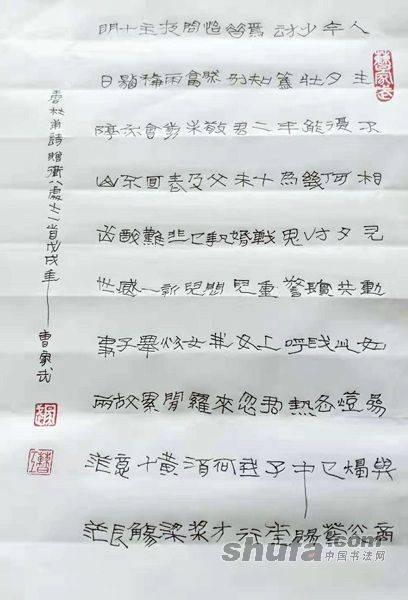 人生不相見動如參與商
今夕復何夕共此燈燭光
少壯能幾時鬢髮各已蒼
訪舊半為鬼驚呼熱中腸
焉知二十載重上君子堂
昔別君未婚兒女忽成行
怡然敬父執問我來何方
問答未及已兒女羅酒漿
夜雨剪春韭新炊間黃粱
主稱會面難一舉累十觴
十觴亦不醉感子故意長
明日隔山岳世事兩茫茫
唐杜甫詩贈衛八處士一首戊戌年
曹家武
曹家武
shufa.com
中国书法网